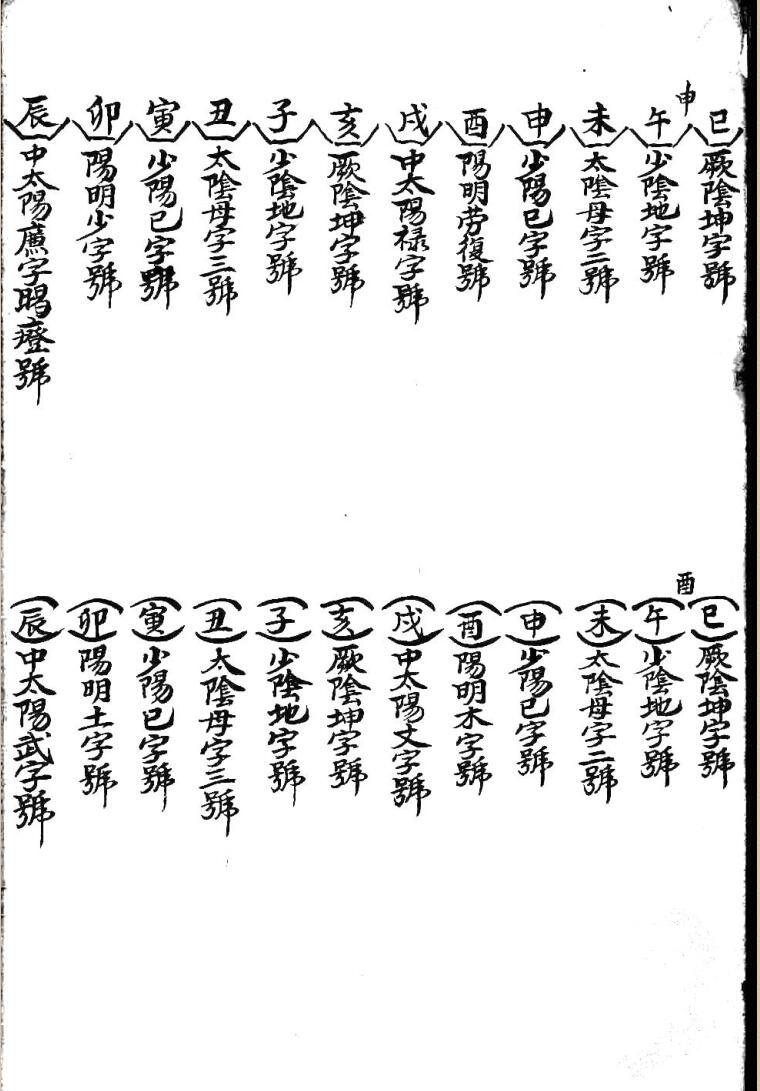 申
巳 厥陰坤字號
午 少陰地字號
未 太陰母字二號
申 少陽巳字號
酉 陽明劳復號
戌 中太陽禄字號
亥 厥陰坤字號
子 少陰地字號
丑 太陰母字三號
寅 少陽巳字號
卯 陽明少字號
辰 中太陽廌字暍瘂號
酉
巳 厥陰坤字號
午 少陰地字號
未 太陰母字二號
申 少陽巳字號
酉 陽明木字號
戌 中太陽文字號
亥 厥陰坤字號
子 少陰地字號
丑 太陰母字三號
寅 少陽巳字號
卯 陽明土字號
辰 中太陽武字號